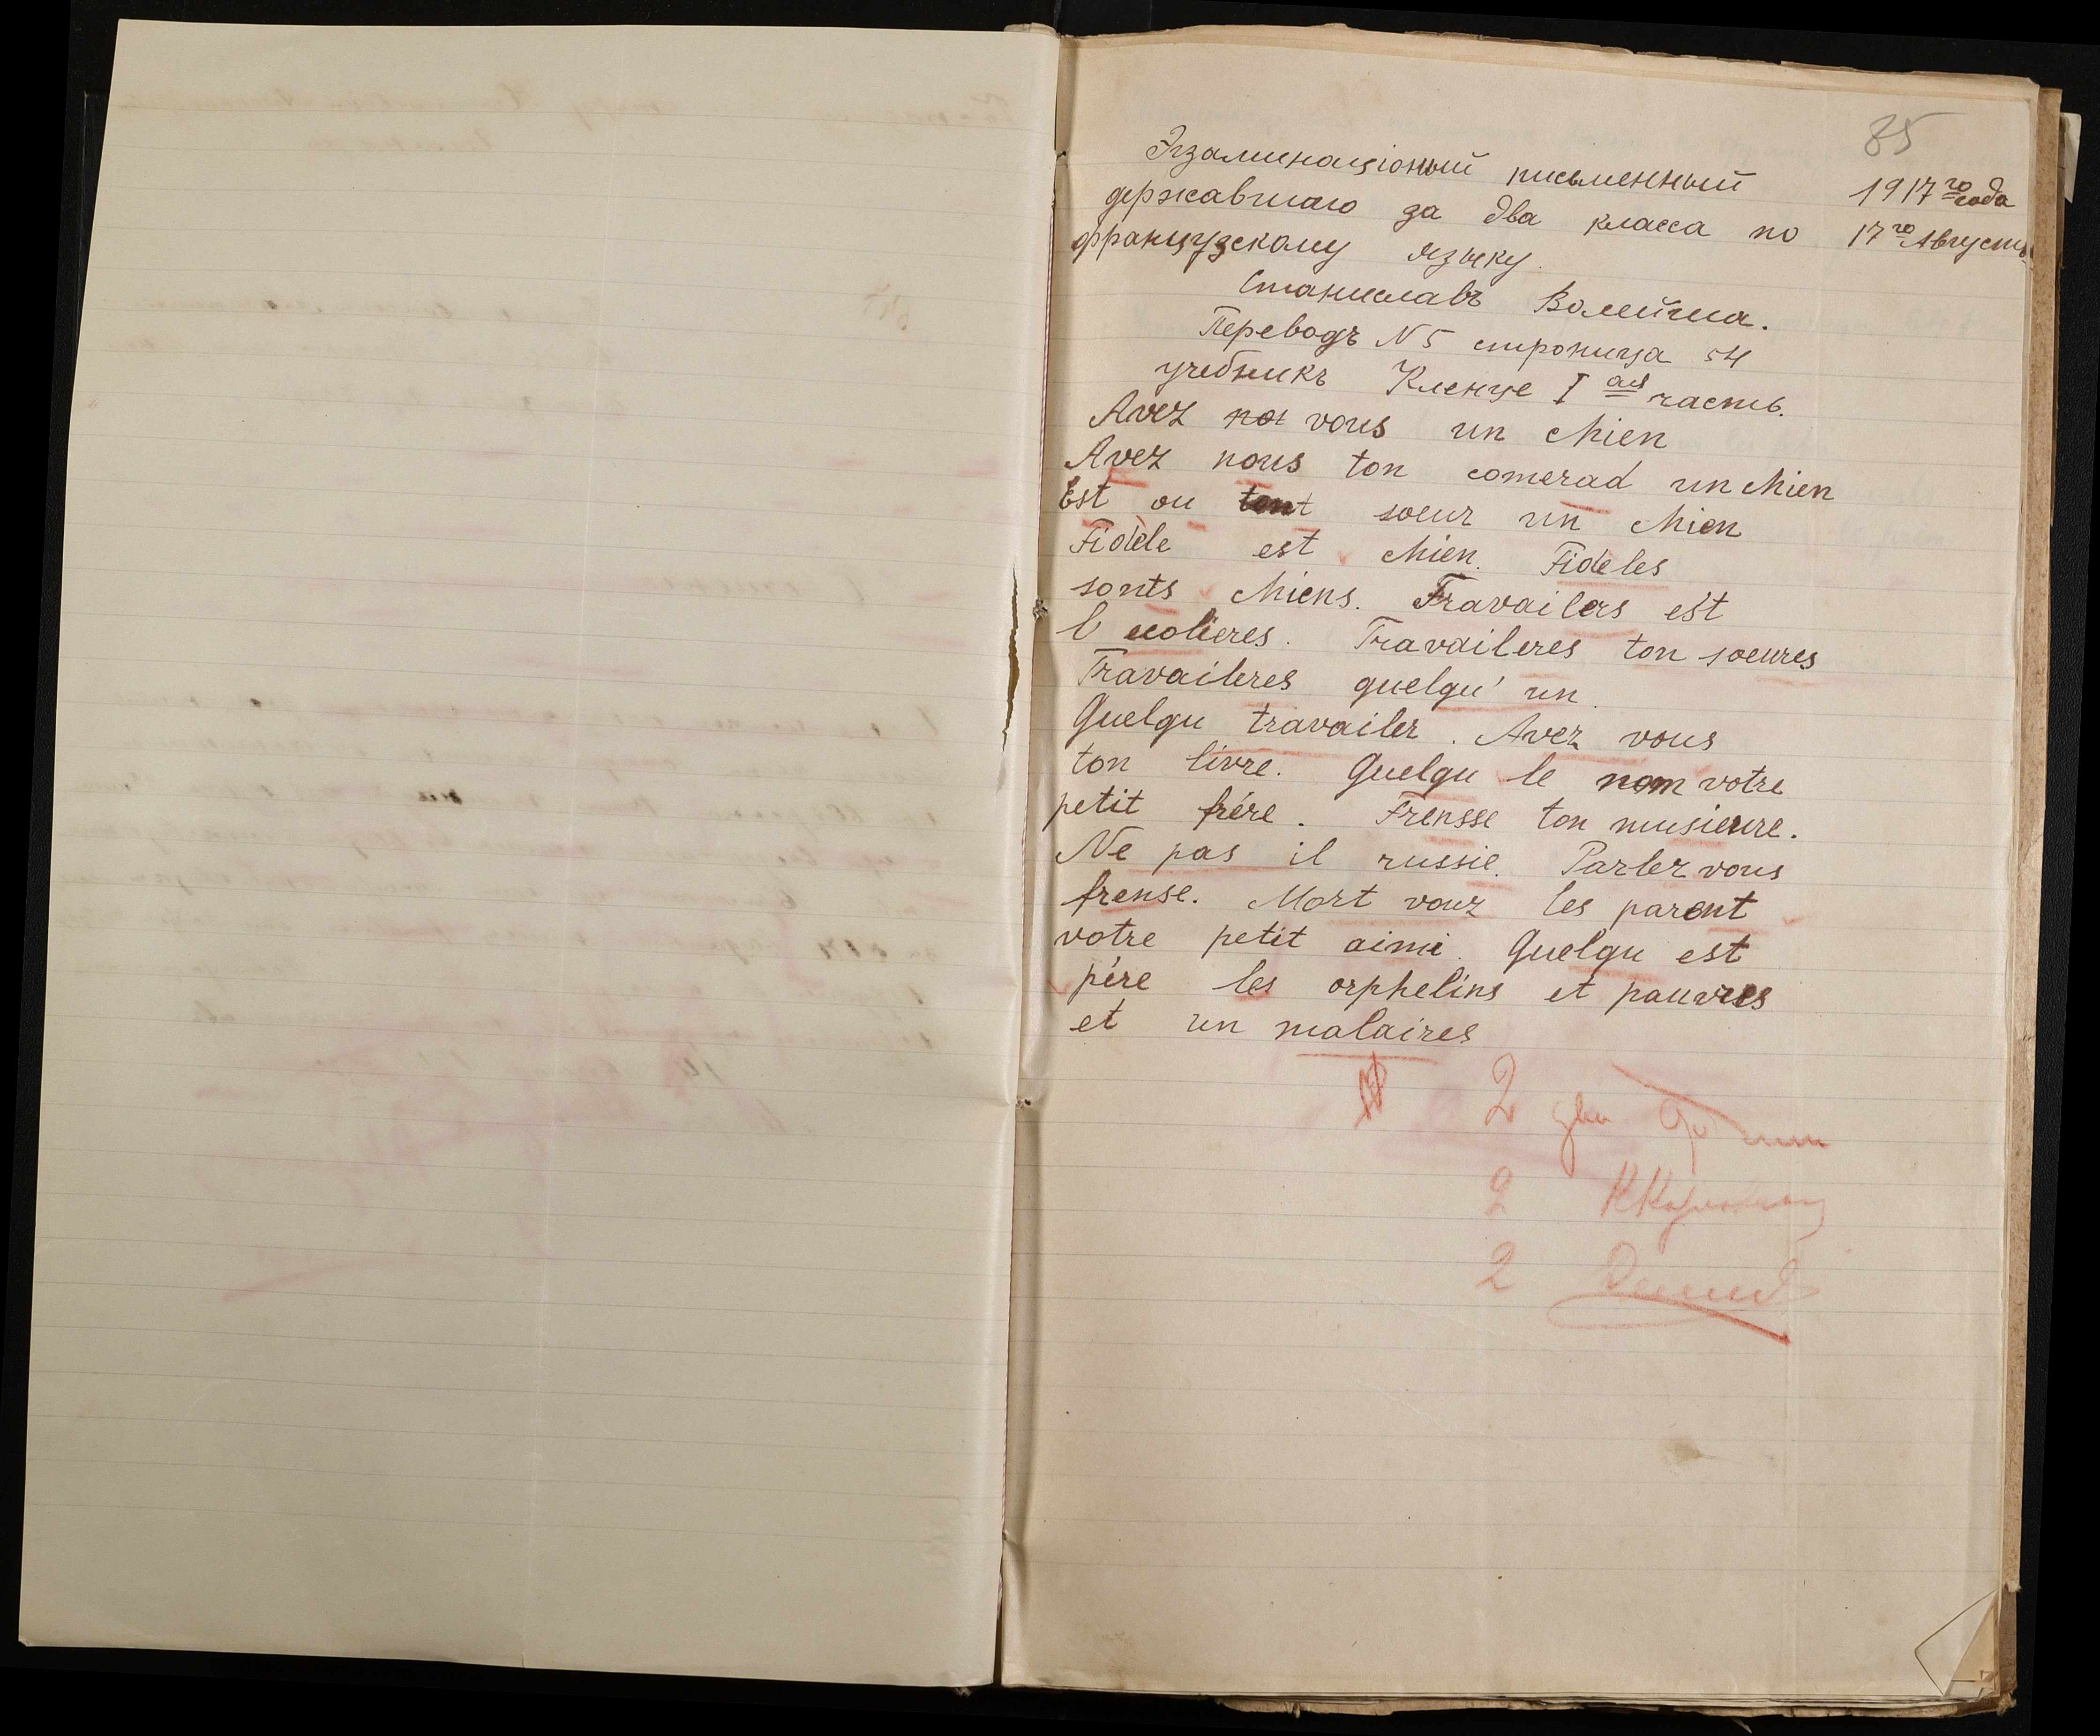 85
Эгзаминаціоный письменный 1917 го года
державшаго за два класса по 17 го Августа
французскому языку.
Станиславъ Волейша.
Переводъ N 5 строница 54
учебникъ Кленце I ая часть.
Avez vous un chien
Avez nous ton comerad un chien
Est ou tont soeur un chien
Fidèle est chien. Fidèles
sonts chiens. Travailers est
l ecolieres. Travaileres ton soeures
Travaileres quelqu' un.
Quelqu travailer. Avez vous
ton livre. Quelqu le nom votre
petit frére. Frensse ton musieure.
Ne pas il russie. Parlez vous
frense. Mort vouz les parent
votre petit aimi. Quelqu est
pére les orphelins et pauvres
et un malaires
2 два
2
2